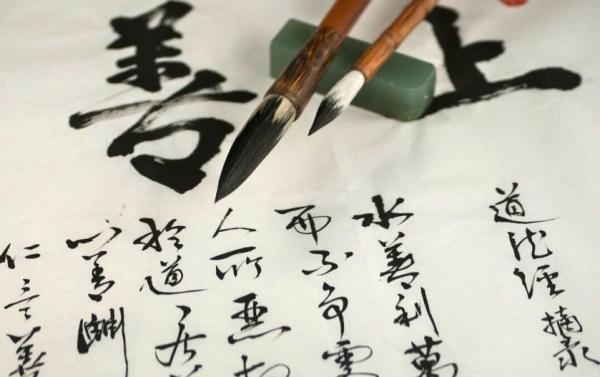 上善
道德經摘录
水善利萬
而不争處
人所惡
於道居
心善淵
仁言善